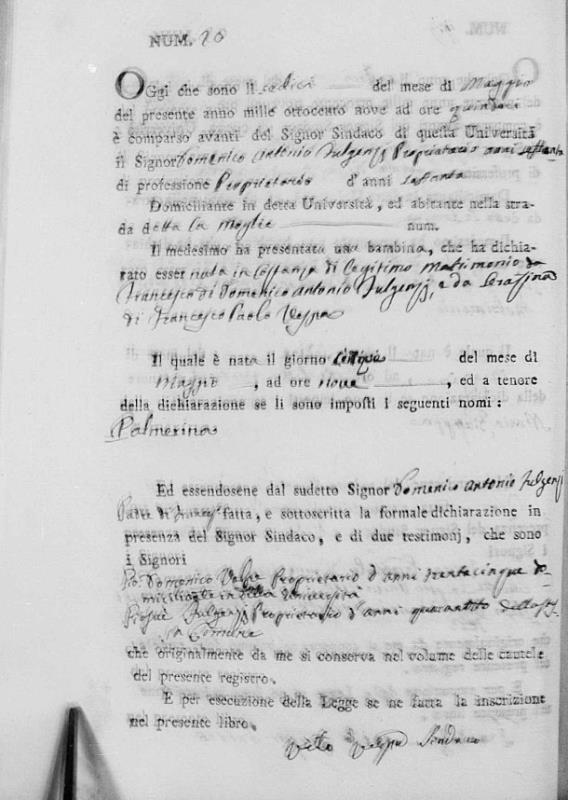 NUM. 20
OGgi che sono li sedici del mese di Maggio
del presente anno mille ottocento nove ad ore quindici
è comparso avanti del Signor Sindaco di questa Università
il Signor Domenico Antonio Fulgenzj Proprietario anni settanta
di professione Proprietario d'anni settanta
Domiciliante in detta Università, ed abitante nella stra-
da detta La Moglie num.
Il medesimo ha presentata una bambina, che ha dichia-
rato esser nata in costanza di Legitimo Matrimonio da
Francesco di Domenico Antonio Fulgenzj, e da Serafina
di Francesco Paolo Vespa
Il quale è nata il giorno del mese di
Maggio, ad ore nove, ed a tenore
della dichiarazione se li sono imposti i seguenti nomi:
Palmerina
Ed essendosene dal sudetto Signor Domenico Antonio Fulgenzj
fatta, e sottoscritta la formale dichiarazione in
presenza del Signor Sindaco, e di due testimonj, che sono
i Signori
Domenico Proprietario d'anni trentacinque do-
miciliante in detta Università
Fulgenzj Proprietario d'anni
Comune
che originalmente da me si conserva nel volume delle cautele
del presente registro.
E per esecuzione della Legge se ne fatta la inscrizione
nel presente libro.
Vito Vespa Sindaco